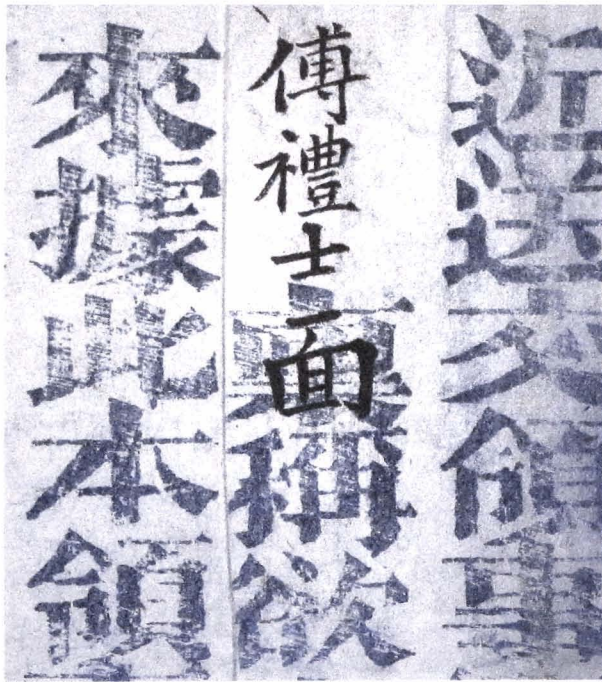 近送交領事
傅禮士面
稱欲
來據此本領